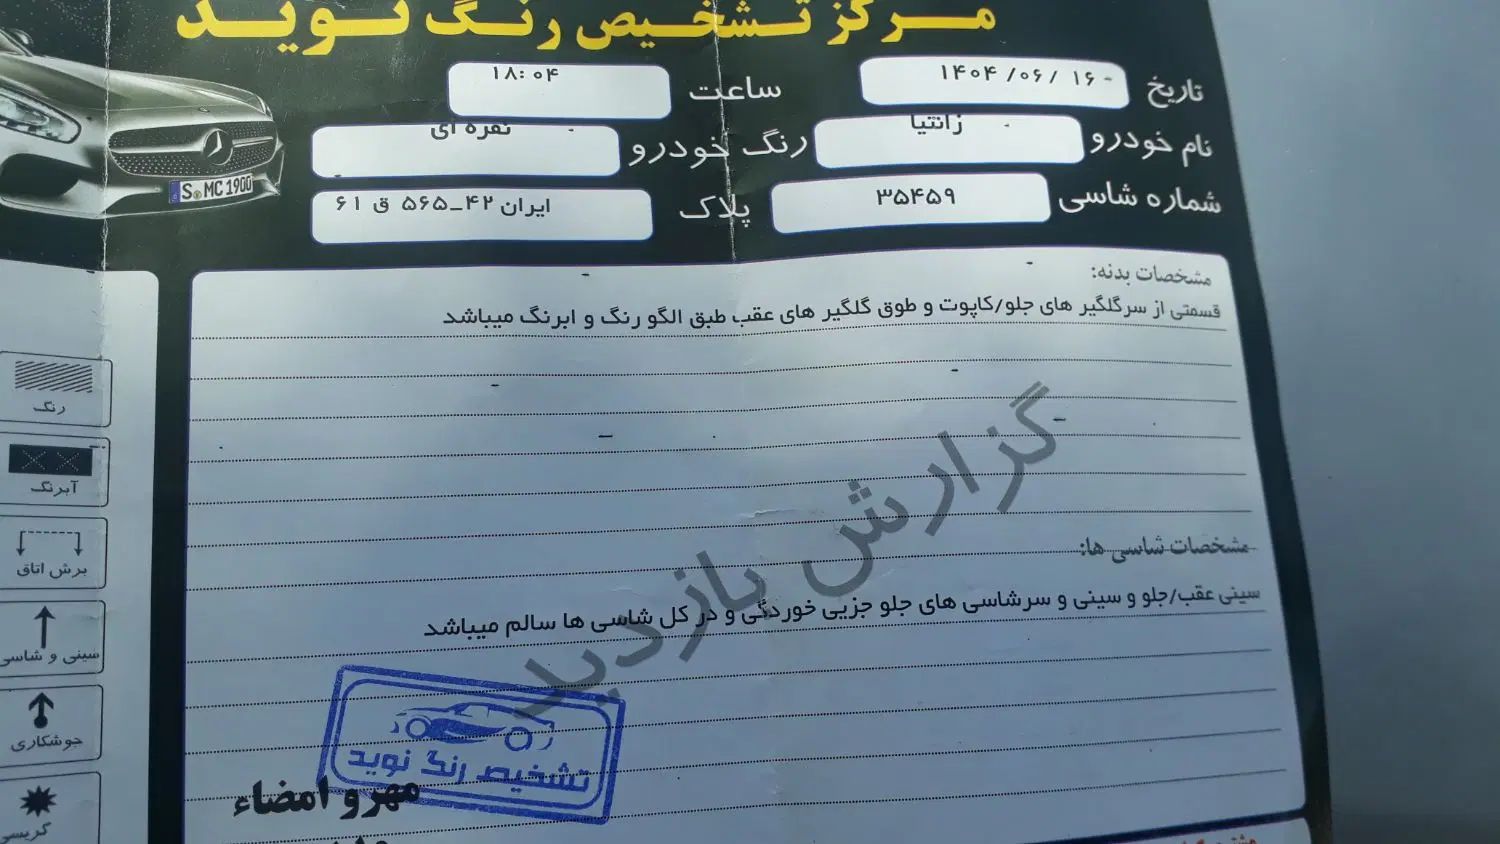 مرکز تشخیص رنگ نوید
تاریخ ۱۴۰۴/۰۶/۱۶ ساعت ۱۸:۰۴
نام خودرو زانتیا رنگ خودرو نقره ای
شماره شاسی ۳۵۴۵۹ پلاک ایران ۴۲_۵۶۵ ق ۶۱
S MC 1900
مشخصات بدنه:
قسمتی از سرگلگیر های جلو/کاپوت و طوق گلگیر های عقب طبق الگو رنگ و ابرنگ میباشد
رنگ
آبرنگ
برش اتاق
سینی و شاسی
جوشکاری
کریسی
گزارش بازدید
مشخصات شاسی ها:
سینی عقب/جلو و سینی و سرشاسی های جلو جزیی خوردگی و در کل شاسی ها سالم میباشد
تشخیص رنگ نوید
مهر و امضاء